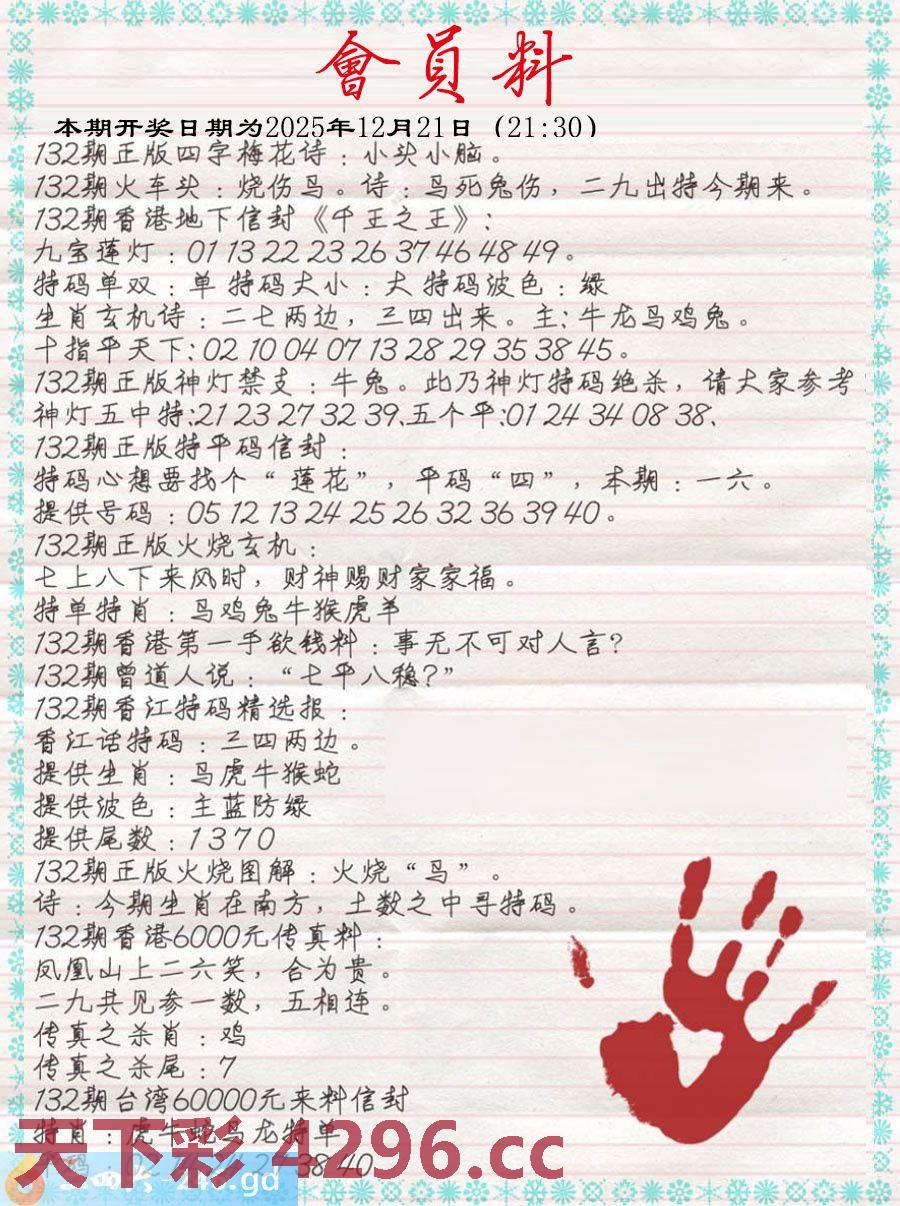 會員料
本期开奖日期为2025年12月21日（21:30）
132期正版四字梅花诗：小头小脑。
132期火车头：烧伤鸟。诗：鸟死兔伤，二九出特今期来。
132期香港地下信封《千王之王》：
九宝莲灯：01 13 22 23 26 37 46 48 49。
特码单双：单 特码大小：大 特码波色：绿
生肖玄机诗：二七两边，三四出来。主：牛龙马鸡兔。
十指平天下：02 10 04 07 13 28 29 35 38 45。
132期正版神灯禁支：牛兔。此乃神灯特码绝杀，请大家参考
神灯五中特：21 23 27 32 39、五个平：01 24 34 08 38、
132期正版特平码信封：
特码心想要找个“莲花”，平码“四”，本期：一六。
提供号码：05 12 13 24 25 26 32 36 39 40。
132期正版火烧玄机：
七上八下来风时，财神赐财家家福。
特单特肖：马鸡兔牛猴虎羊
132期香港第一手欲钱料：事无不可对人言？
132期曾道人说：“七平八稳？”
132期香江特码精选报：
香江话特码：三四两边。
提供生肖：马虎牛猴蛇
提供波色：主蓝防绿
提供尾数：1 3 7 0
132期正版火烧图解：火烧“鸟”。
诗：今期生肖在南方，土数之中寻特码。
132期香港6000元传真料：
凤凰山上二六笑，合为贵。
二九共见参一数，五相连。
传真之杀肖：鸡
传真之杀尾：7
132期台湾60000元来料信封
特肖：虎牛蛇马龙特单
38 40
天下彩 4296.cc
.gd